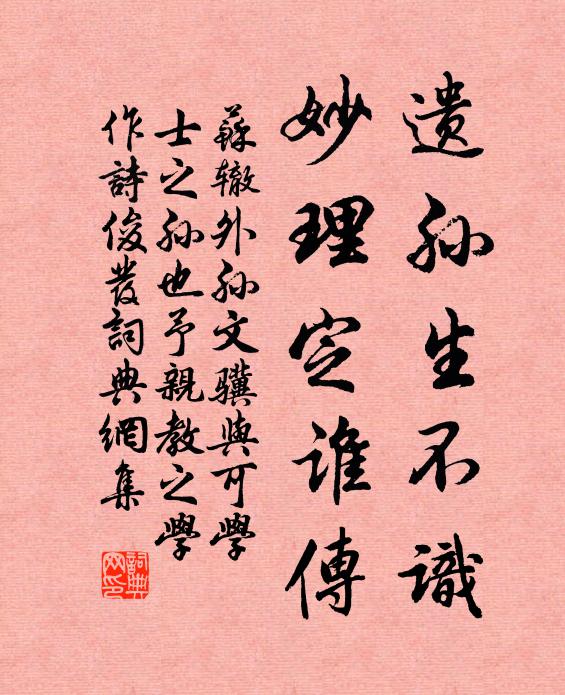 遗孙生不識
妙理定谁傳
蘇辙外孙文骥與可學
士之孙也予親教之學
作詩俊發詞典網集
詞典网印